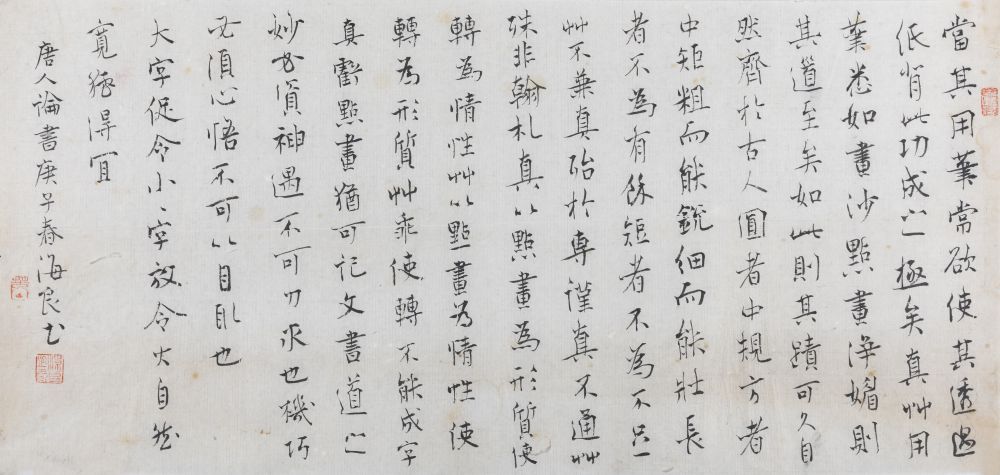 當其用筆常欲使其透過
紙背此功成之極矣真艸用
筆悉如畫沙點畫淨媚則
其道至矣如此則其蹟可久自
然齊於古人圓者中規方者
中矩粗而能銳細而能壯長
者不為有餘短者不為不足
艸不兼真殆於專謹真不通艸
殊非翰札真以點畫為形質使
轉為情性艸以點畫為情性使
轉為形質艸乖使轉不能成字
真虧點畫猶可記文書道之
妙必資神遇不可力求也機巧
必須心悟不可以目取也
大字促令小小字放令大自然
寬猛得宜
唐人論書庚子春海良書